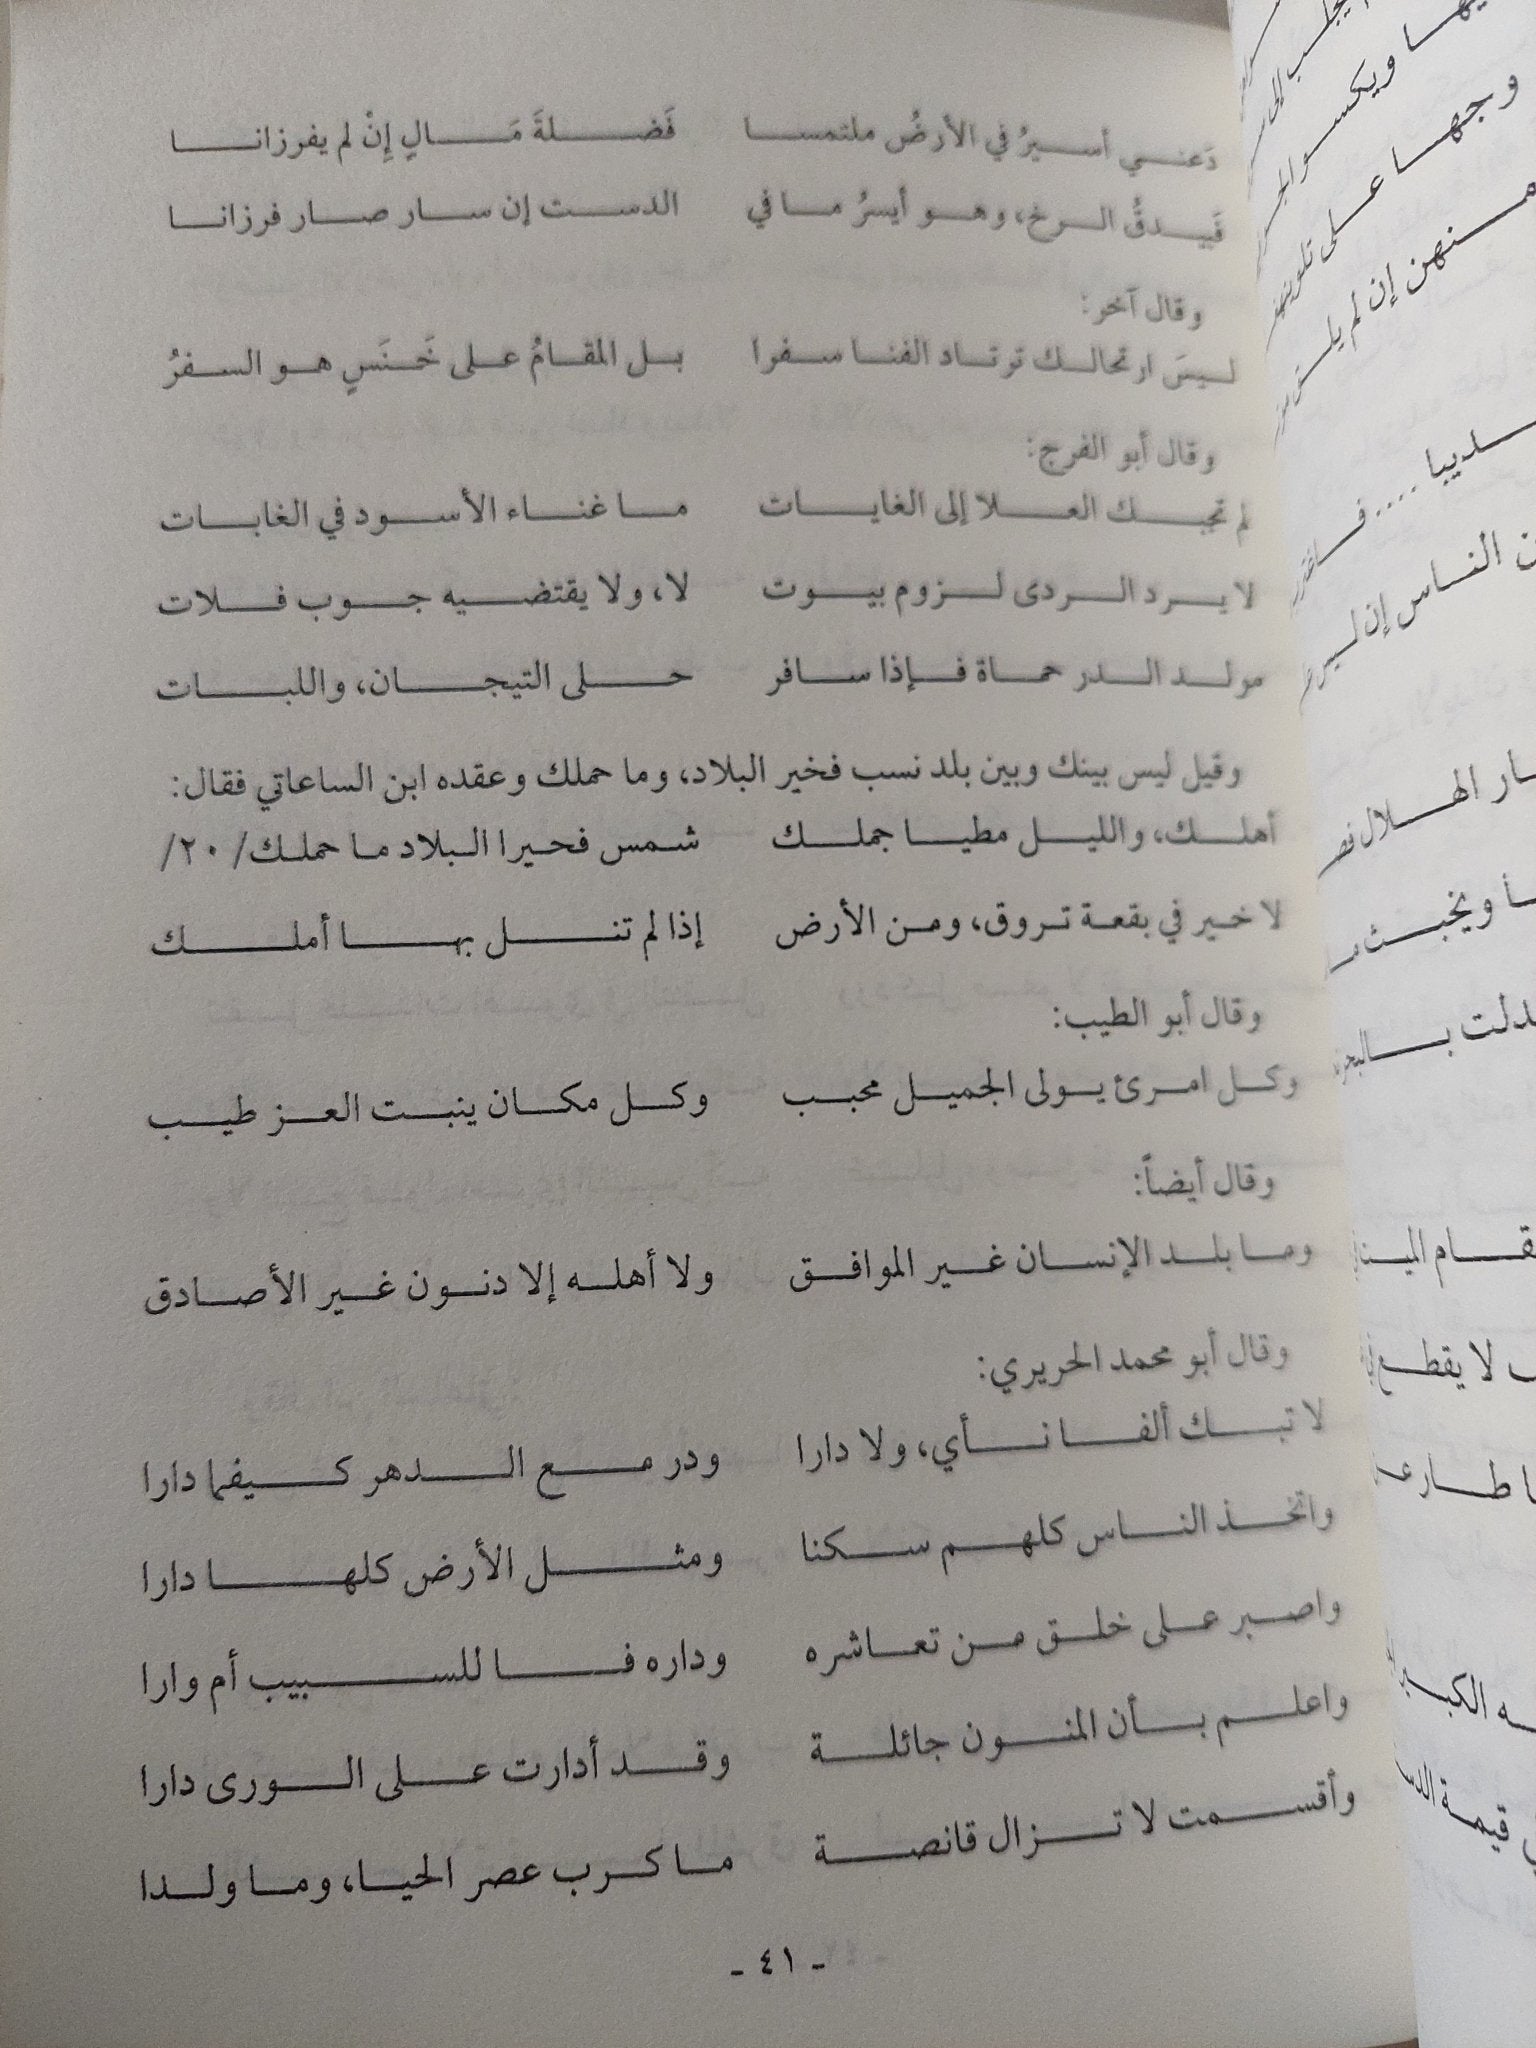 دَعنـي أسـيرُ في الأرضُ ملتمسـا فَضـلةَ مَـالٍ إِنْ لم يفرزانـا
فَبيـدقُ الـرخ، وهـو أيسرُ مـا في الدسـت إن سـار صـار فرزانـا
وقال آخر:
لـيسَ ارتحالـك ترتـاد الفنـا سـفرا بـل المقـامُ عـلى خَـنَسٍ هـو السـفرُ
وقال أبو الفرج:
لم تجبـك العـلا إلى الغايـات مـا غنـاء الأسـود في الغابـات
لا يـرد الـردى لـزوم بيـوت لا، ولا يقتضـيه جـوب فـلات
مولـد الـدر حمـاة فـإذا سـافر حـلى التيجـان، واللبـات
وقيل ليس بينك وبين بلد نسب فخير البلاد، وما حملك وعقده ابن الساعاتي فقال:
أهلـك، والليـل مطيـا جملـك شـمس فحيرا البـلاد مـا حملـك/ ٢٠/
لا خـير في بقعـة تـروق، ومـن الأرض إذا لم تنـل بهـا أملـك
وقال أبو الطيب:
وكـل امـرئ يـولى الجميـل محبـب وكـل مكـان ينبـت العـز طيـب
وقال أيضاً:
ومـا بلـد الإنسـان غـير الموافـق ولا أهلـه إلا دنـون غـير الأصـادق
وقال أبو محمد الحريري:
لا تبـك ألفـا نـأي، ولا دارا ودر مـع الـدهر كـيفما دارا
واتخـذ النـاس كلهـم سـكنا ومثـل الأرض كلهـا دارا
واصـبر عـلى خلـق مـن تعـاشره وداره فـا للسـبيب أم وارا
واعلـم بـأن المنـون جائلـة وقـد أدارت عـلى الـورى دارا
وأقسـمت لا تـزال قانصـة مـا كـرب عصر الحيـا، ومـا ولـدا
- ٤١ -